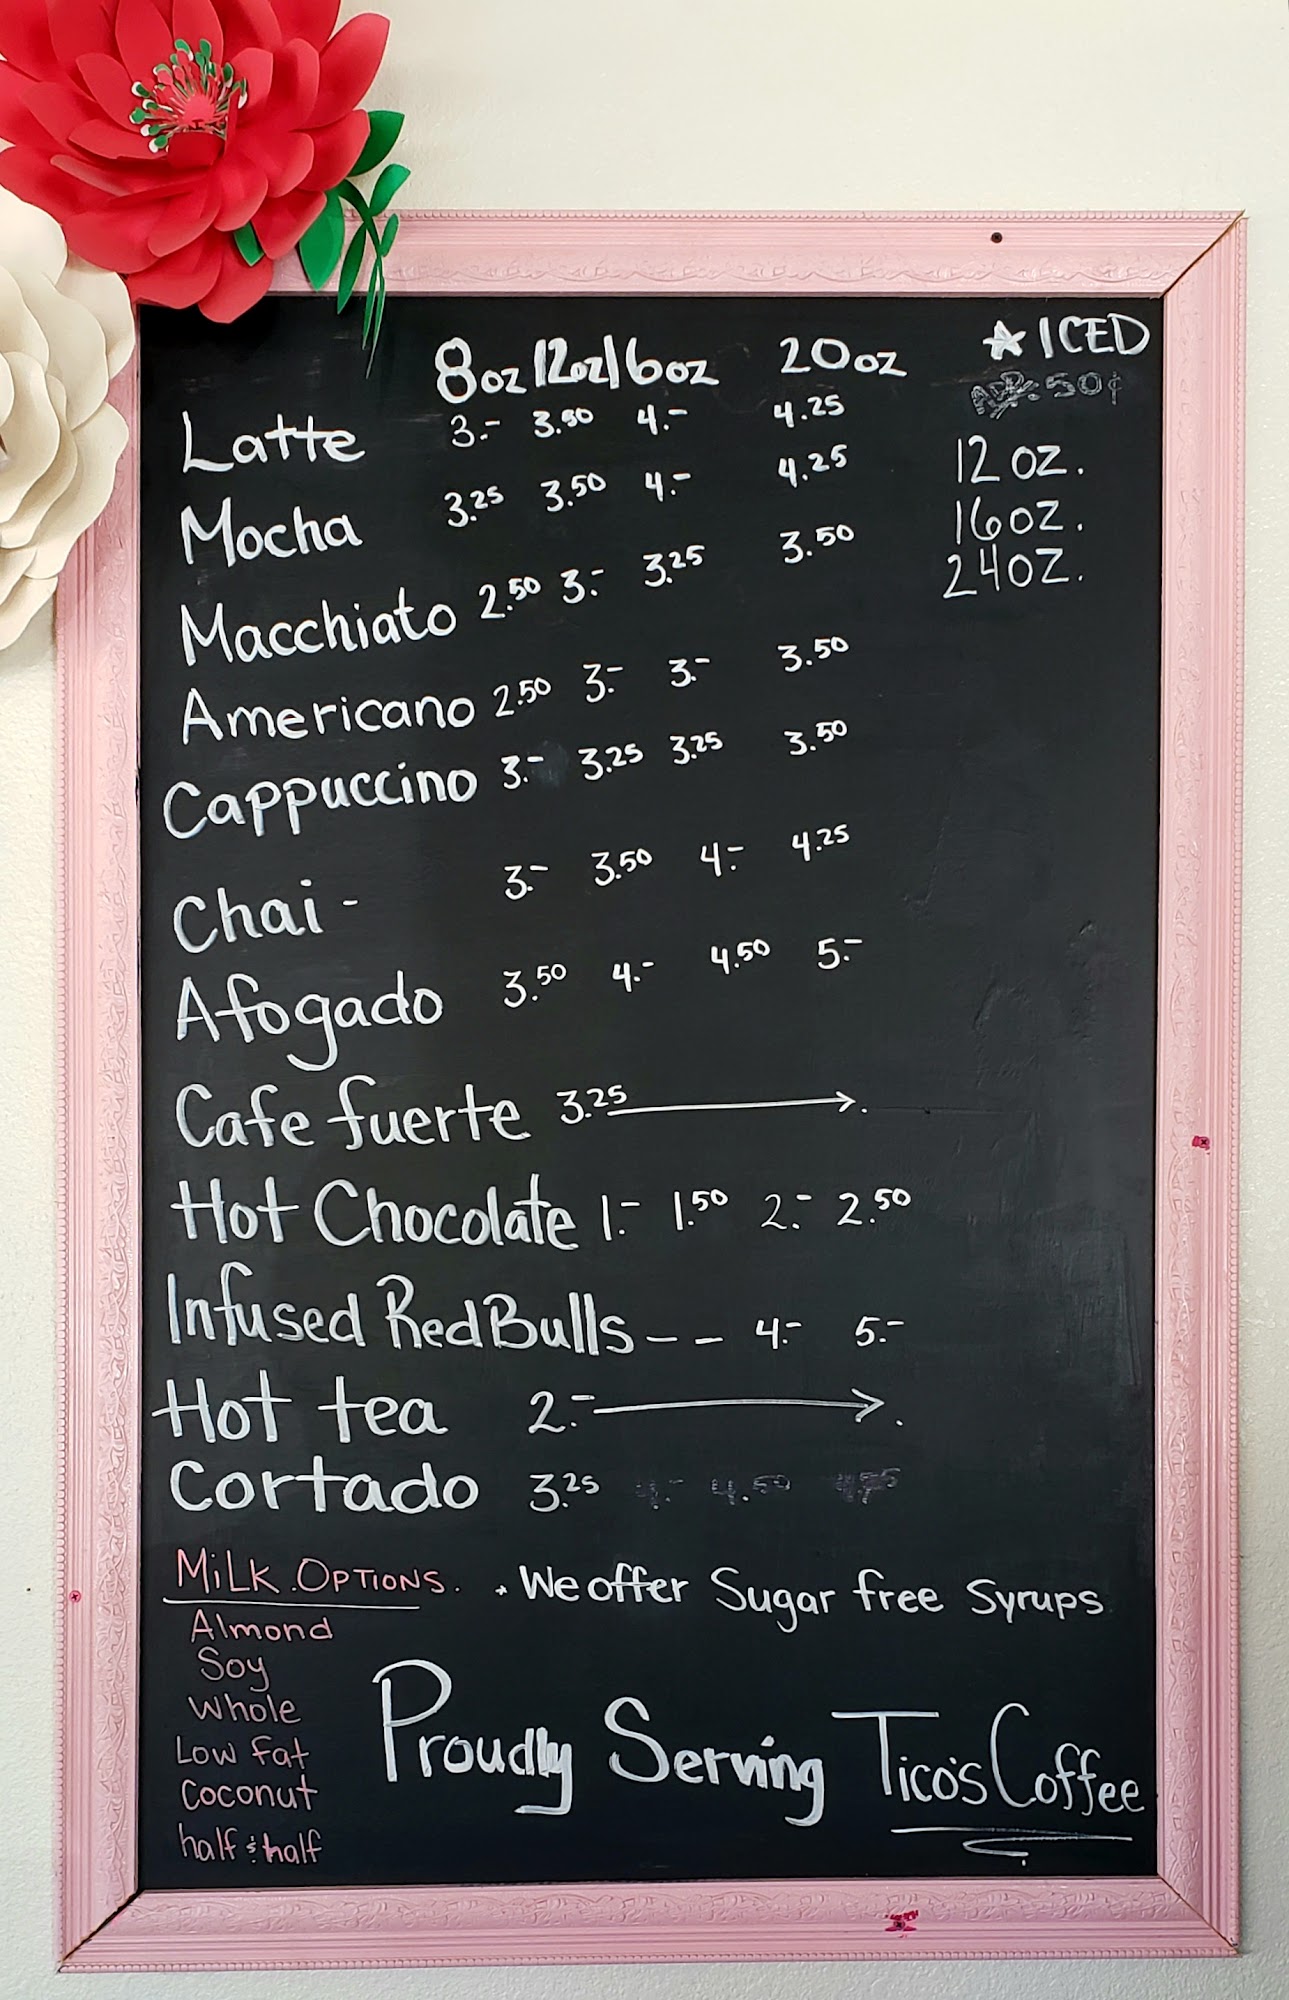 8oz 12oz 16oz 20oz
★ ICED
50¢
12 oz.
16 oz.
24 oz.
Latte 3.- 3.50 4.- 4.25
Mocha 3.25 3.50 4.- 4.25
Macchiato 2.50 3.- 3.25 3.50
Americano 2.50 3.- 3.- 3.50
Cappuccino 3.- 3.25 3.25 3.50
Chai - 3.- 3.50 4.- 4.25
Afogado 3.50 4.- 4.50 5.-
Cafe fuerte 3.25 →.
Hot Chocolate 1.- 1.50 2.- 2.50
Infused RedBulls - - 4.- 5.-
Hot tea 2.- →.
Cortado 3.25 4.- 4.50
MiLK.OPTiONS.
Almond
Soy
Whole
Low Fat
Coconut
half & half
* We offer Sugar free Syrups
Proudly Serving Tico's Coffee